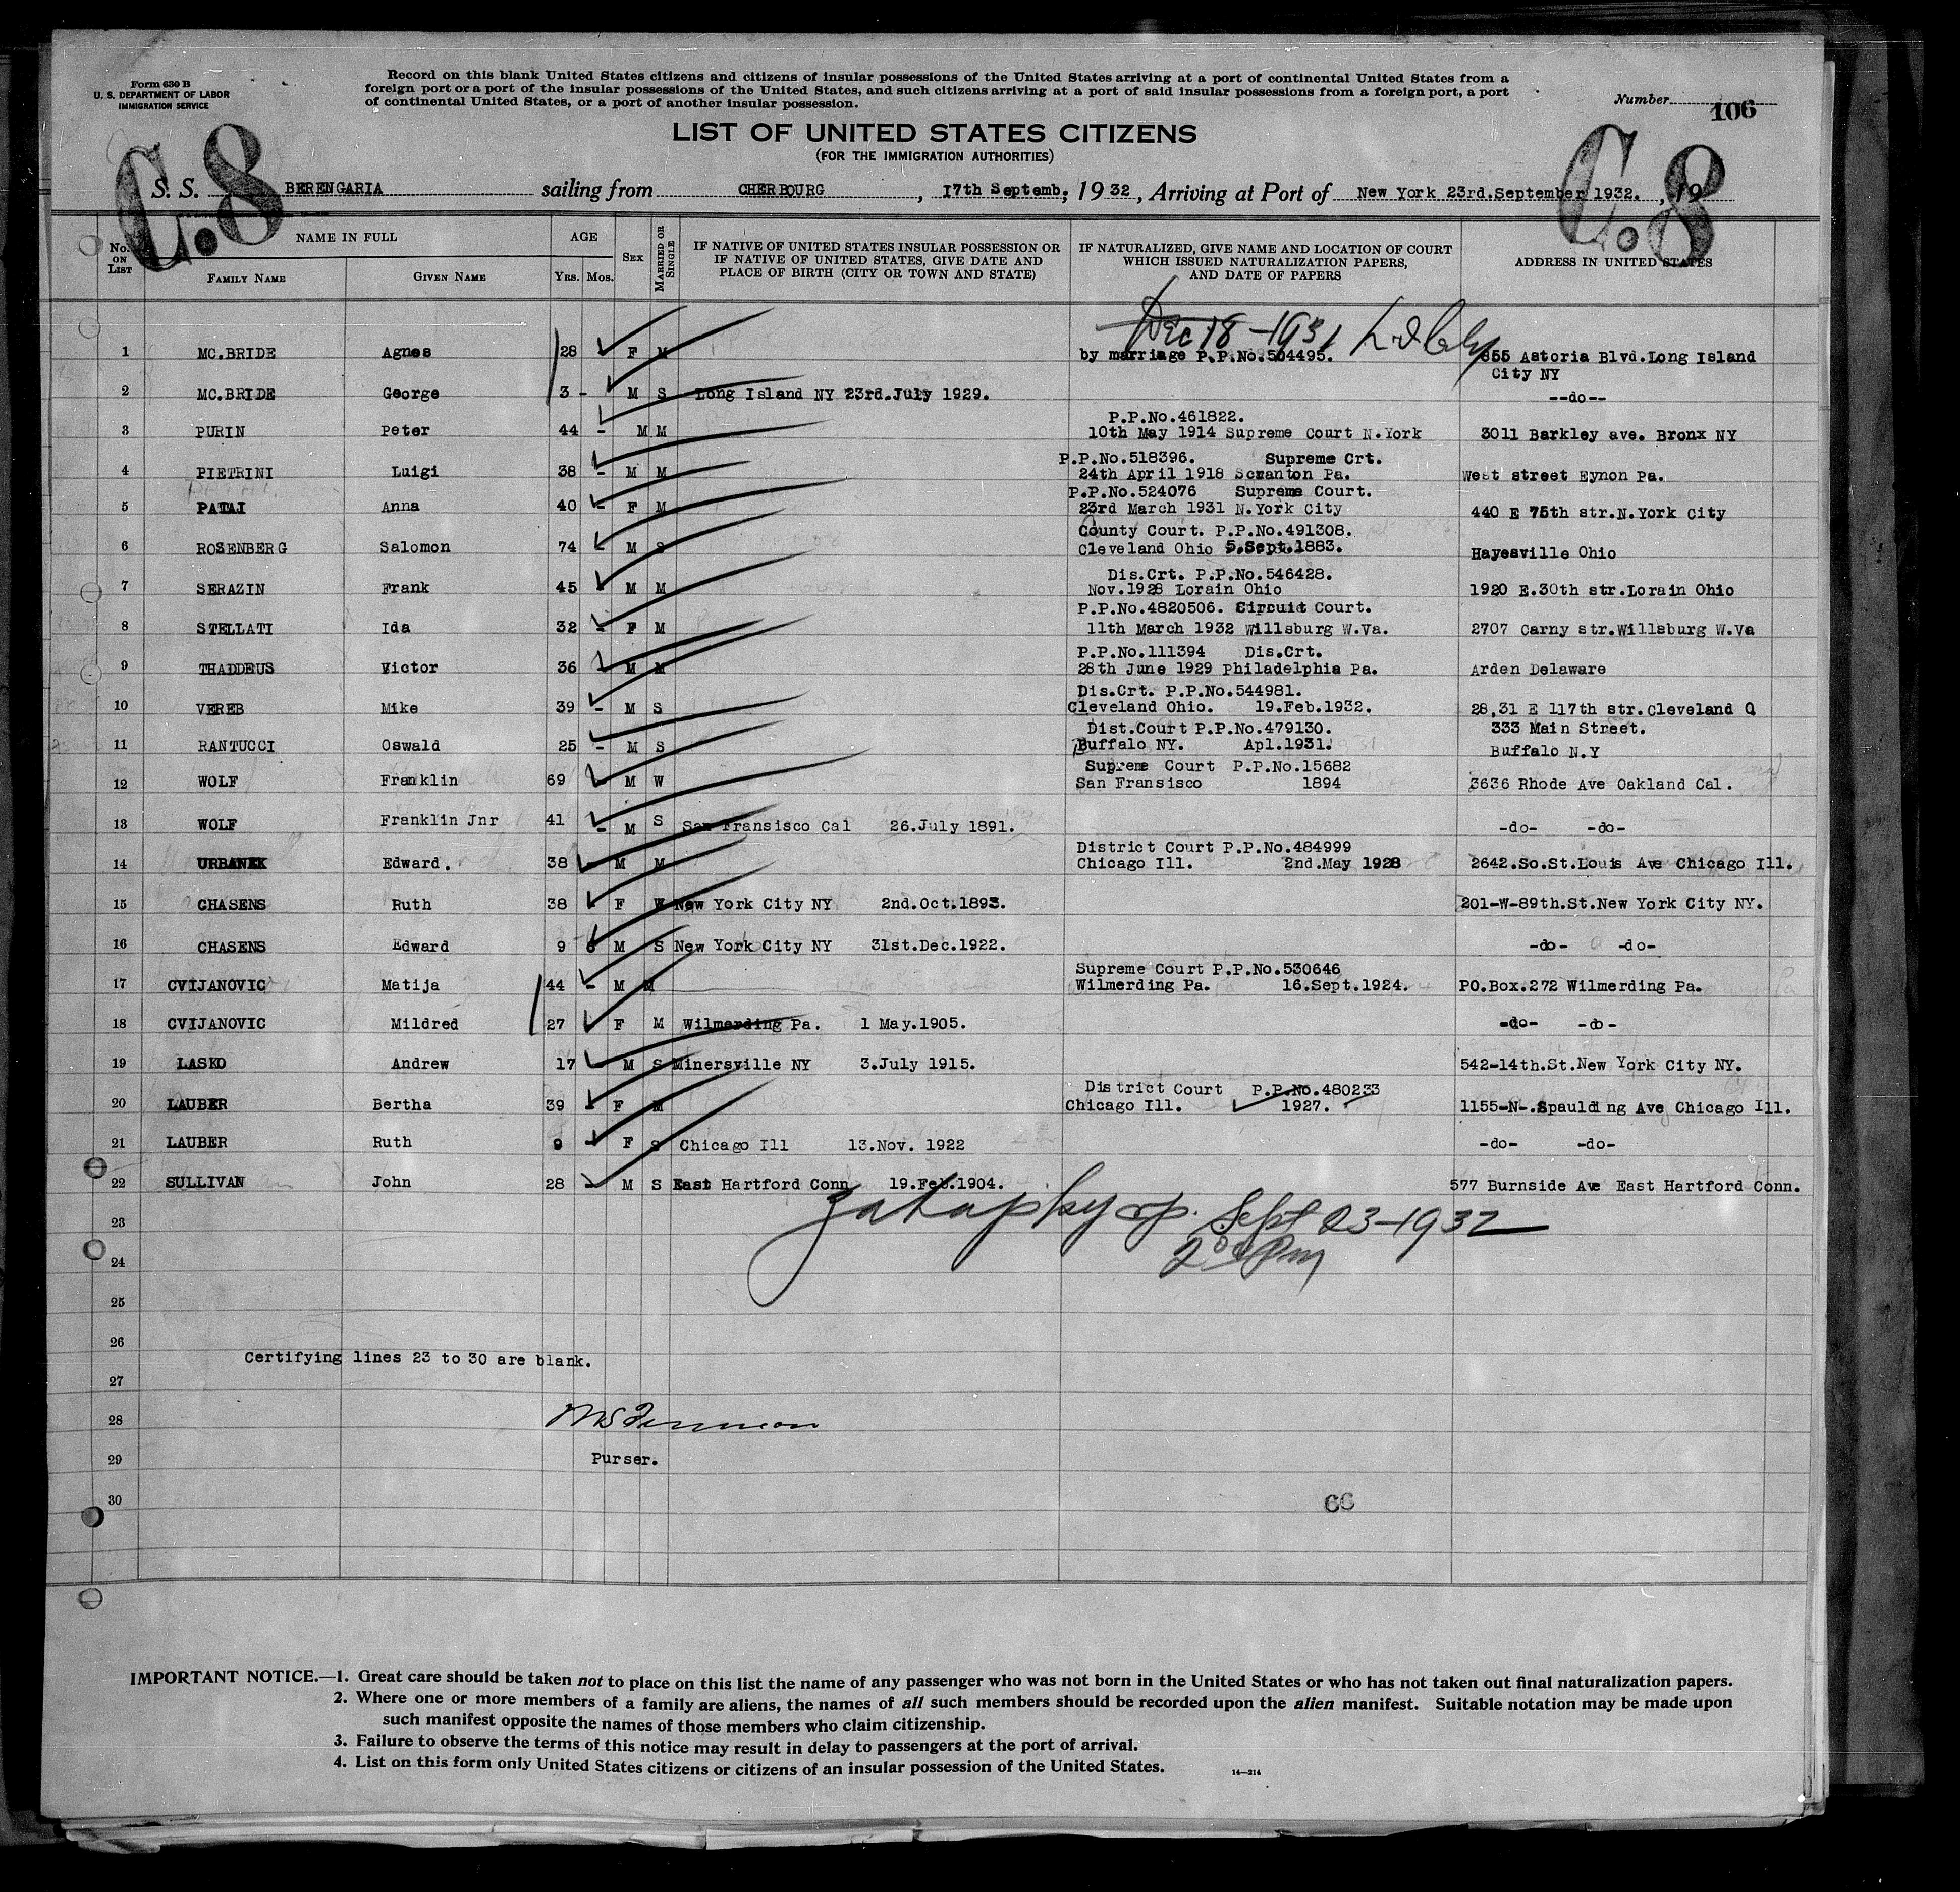 Form 630 B
U. S. DEPARTMENT OF LABOR
IMMIGRATION SERVICE
Record on this blank United States citizens and citizens of insular possessions of the United States arriving at a port of continental United States from a
foreign port or a port of the insular possessions of the United States, and such citizens arriving at a port of said insular possessions from a foreign port, a port
of continental United States, or a port of another insular possession.
Number 106
LIST OF UNITED STATES CITIZENS
(FOR THE IMMIGRATION AUTHORITIES)
C.8 C.8
S. S. BERENGARIA sailing from CHERBOURG, 17th Septemb; 1932, Arriving at Port of New York 23rd.September 1932. , 19
No. ON LIST
NAME IN FULL
FAMILY NAME GIVEN NAME
AGE
Yrs. Mos.
SEX
MARRIED OR SINGLE
IF NATIVE OF UNITED STATES INSULAR POSSESSION OR
IF NATIVE OF UNITED STATES, GIVE DATE AND
PLACE OF BIRTH (CITY OR TOWN AND STATE)
IF NATURALIZED, GIVE NAME AND LOCATION OF COURT
WHICH ISSUED NATURALIZATION PAPERS,
AND DATE OF PAPERS
ADDRESS IN UNITED STATES
Dec 18-1931
1 MC.BRIDE Agnes 28 F M by marriage P.P.No.504495. 855 Astoria Blvd.Long Island
City NY
2 MC.BRIDE George 3 - M S Long Island NY 23rd.July 1929. --do--
P.P.No.461822.
3 PURIN Peter 44 - M M 10th May 1914 Supreme Court N.York 3011 Barkley ave. Bronx NY
P.P.No.518396. Supreme Crt.
4 PIETRINI Luigi 38 - M M 24th April 1918 Scranton Pa. West street Eynon Pa.
P.P.No.524076 Supreme Court.
5 PATAI Anna 40 - F M 23rd March 1931 N.York City 440 E 75th str.N.York City
County Court. P.P.No.491308.
6 ROSENBERG Salomon 74 - M S Cleveland Ohio 5.Sept.1883. Hayesville Ohio
Dis.Crt. P.P.No.546428.
7 SERAZIN Frank 45 M M Nov.1928 Lorain Ohio 1920 E.30th str.Lorain Ohio
P.P.No.4820506. Circuit Court.
8 STELLATI Ida 32 - F M 11th March 1932 Willsburg W.Va. 2707 Carny str.Willsburg W.Va
P.P.No.111394 Dis.Crt.
9 THADDEUS Victor 36 M M 28th June 1929 Philadelphia Pa. Arden Delaware
Dis.Crt. P.P.No.544981.
10 VEREB Mike 39 - M S Cleveland Ohio. 19.Feb.1932. 28,31 E 117th str.Cleveland O
Dist.Court P.P.No.479130. 333 Main Street.
11 RANTUCCI Oswald 25 - M S Buffalo NY. Apl.1931. Buffalo N.Y
Supreme Court P.P.No.15682
12 WOLF Franklin 69 - M W San Fransisco 1894 3636 Rhode Ave Oakland Cal.
13 WOLF Franklin Jnr 41 - M S San Fransisco Cal 26.July 1891. -do- -do-
District Court P.P.No.484999
14 URBANEK Edward. 38 - M M Chicago Ill. 2nd.May 1928 2642.So.St.Louis Ave Chicago Ill.
15 CHASENS Ruth 38 - F W New York City NY 2nd.Oct.1893. 201-W-89th.St.New York City NY.
16 CHASENS Edward 9 6 M S New York City NY 31st.Dec.1922. -do- -do-
Supreme Court P.P.No.530646
17 CVIJANOVIC Matija 44 - M M Wilmerding Pa. 16.Sept.1924. PO.Box.272 Wilmerding Pa.
18 CVIJANOVIC Mildred 27 - F M Wilmerding Pa. 1 May.1905. -do- -do-
19 LASKO Andrew 17 M S Minersville NY 3.July 1915. 542-14th.St.New York City NY.
District Court P.P.No.480233
20 LAUBER Bertha 39 - F M Chicago Ill. 1927. 1155-N-.Spaulding Ave Chicago Ill.
21 LAUBER Ruth 9 - F S Chicago Ill 13.Nov. 1922 -do- -do-
22 SULLIVAN John 28 - M S East Hartford Conn 19.Feb.1904. 577 Burnside Ave East Hartford Conn.
23 Sept 23-1932
24 2 00 Pm
25
26
Certifying lines 23 to 30 are blank.
27
28
29 Purser.
30 66
IMPORTANT NOTICE.—1. Great care should be taken not to place on this list the name of any passenger who was not born in the United States or who has not taken out final naturalization papers.
2. Where one or more members of a family are aliens, the names of all such members should be recorded upon the alien manifest. Suitable notation may be made upon
such manifest opposite the names of those members who claim citizenship.
3. Failure to observe the terms of this notice may result in delay to passengers at the port of arrival.
4. List on this form only United States citizens or citizens of an insular possession of the United States.
14—214